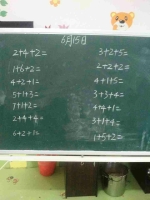 6月15日
2+4+2=
1+6+2=
4+2+1=
5+1+3=
7+1+2=
2+4+4=
6+2+1=
3+2+5=
2+2+2=
4+1+5=
3+3+4=
4+4+1=
3+1+4=
1+5+2=